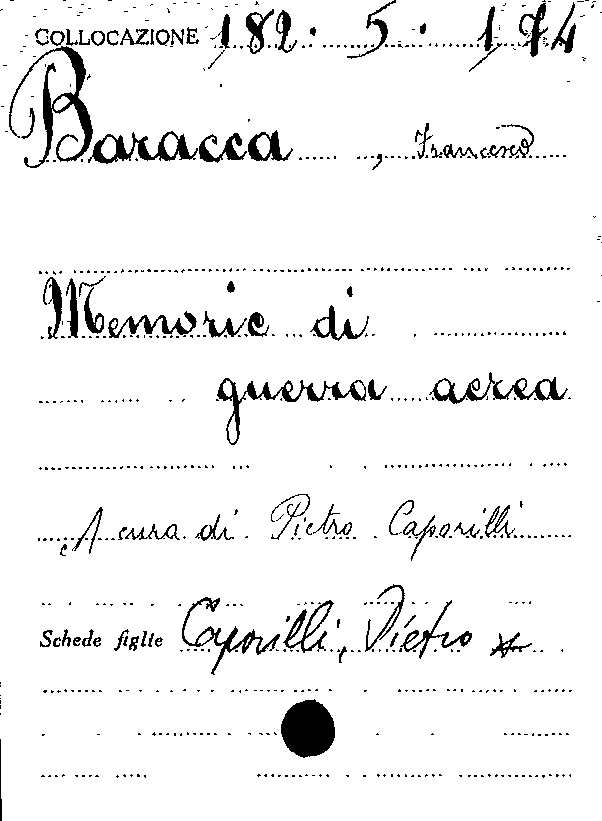 COLLOCAZIONE 182. 5. 174
Baracca, Francesco
Memorie di
guerra aerea
A cura di Pietro Caporilli
Schede figlie Caporilli, Pietro *